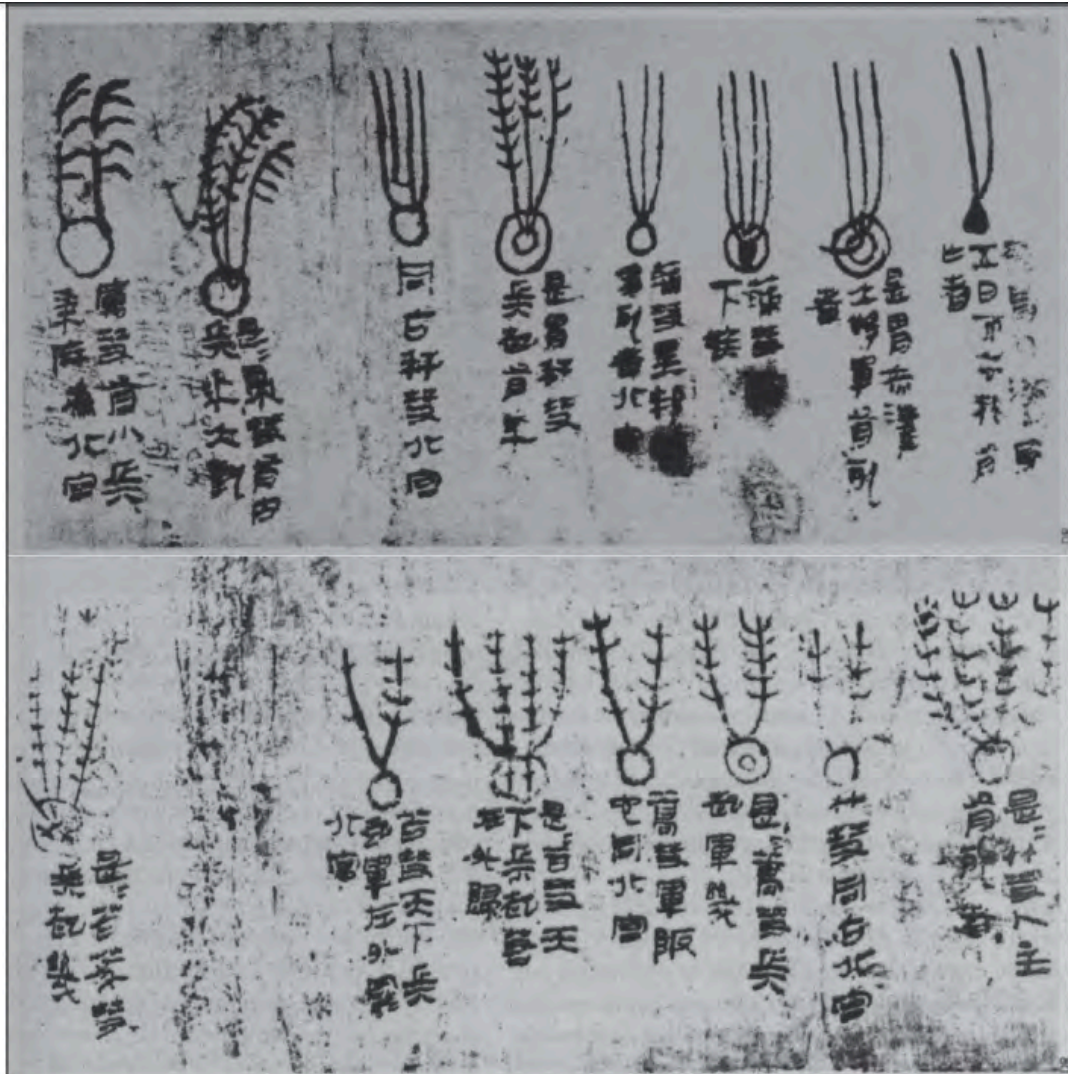 是胃赤灌
大將軍有死
者
蒲彗
下疾
是胃秆彗
兵起有年
同占秆彗北宮
是=帚彗有内
兵年大孰
厲彗有小兵
黍麻為北宮
是=竹彗人主
有死者
竹彗同占北宮
是=蒿彗兵
起軍幾
蒿彗軍阪
它同北宮
是=苫彗天
下兵起若
在外歸
苫彗天下兵
起軍在外罷
北宮
兵起幾